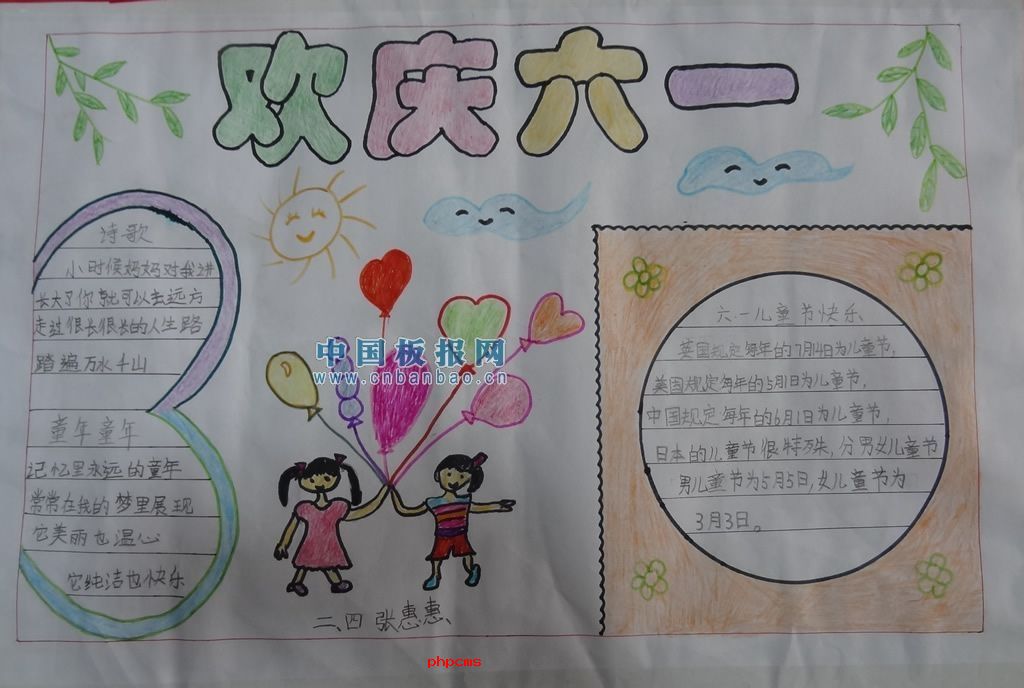 欢庆六一
诗歌
小时候妈妈对我讲
长大了你就可以去远方
走过很长很长的人生路
踏遍万水千山
童年童年
记忆里永远的童年
常常在我的梦里展现
它美丽也温心
它纯洁也快乐
中国板报网
www.cnbanbao.cn
二、四 张惠惠
六.一儿童节快乐
英国规定每年的7月14日为儿童节,
美国规定每年的5月1日为儿童节,
中国规定每年的6月1日为儿童节,
日本的儿童节很特殊,分男女儿童节
男儿童节为5月5日,女儿童节为
3月3日。
phpcms